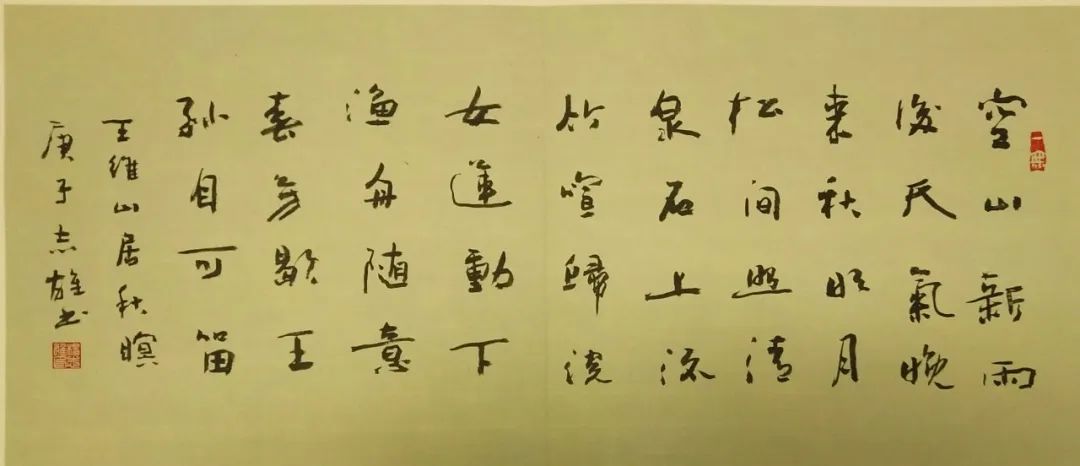 空山新雨
後天氣晚
来秋明月
松间照清
泉石上流
竹喧歸浣
女蓮動下
渔舟随意
春芳歇王
孙自可留
王維山居秋暝
庚子志雄书